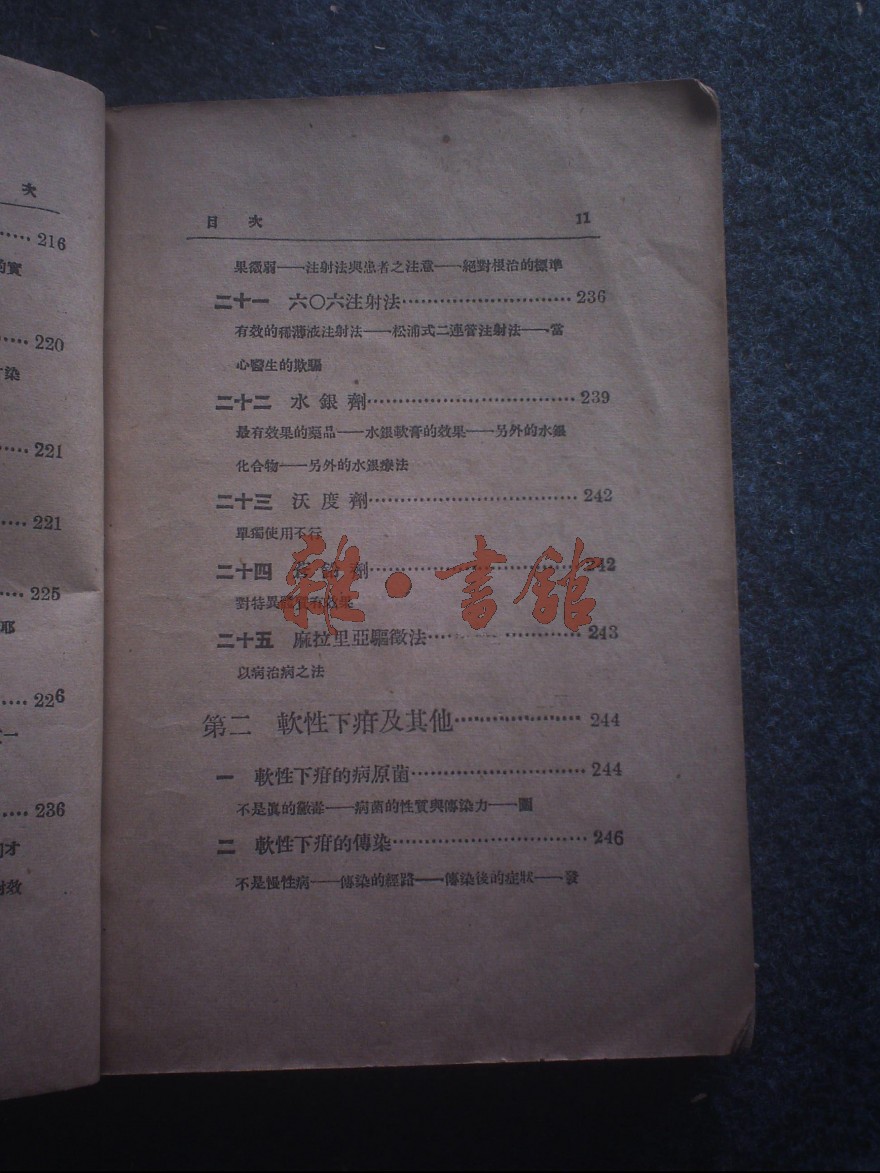 次
216
的實
220
染
221
221
225
耶
226
一
236
才
效
目 次 11
果微弱——注射法與患者之注意——絕對根治的標準
二十一 六〇六注射法 236
有效的稀薄液注射法——松浦式二連管注射法——當
心醫生的欺騙
二十二 水銀劑 239
最有效果的藥品——水銀軟膏的效果——另外的水銀
化合物——另外的水銀療法
二十三 沃度劑 242
單獨使用不行
二十四 劑 242
對特異體質有效果
二十五 麻拉里亞驅黴法 243
以病治病之法
第二 軟性下疳及其他 244
一 軟性下疳的病原菌 244
不是眞的黴毒——病菌的性質與傳染力——圖
二 軟性下疳的傳染 246
不是慢性病——傳染的經路——傳染後的症狀——發
雜·書館